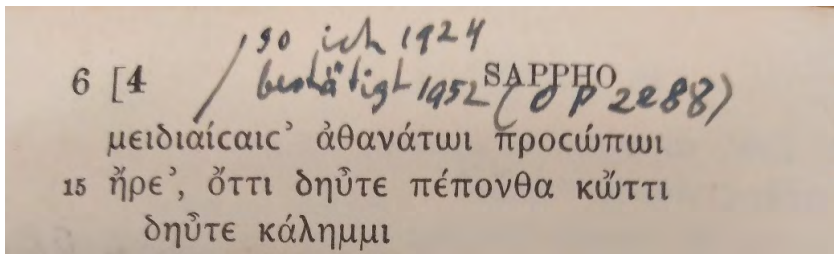 so ich 1924
bestätigt 1952 (OP 2288)
6 [4 SAPPHO
μειδιαίϲαιϲ’ ἀθανάτωι προϲώπωι
15 ἤρε’, ὄττι δηὖτε πέπονθα κὤττι
δηὖτε κάλημμι